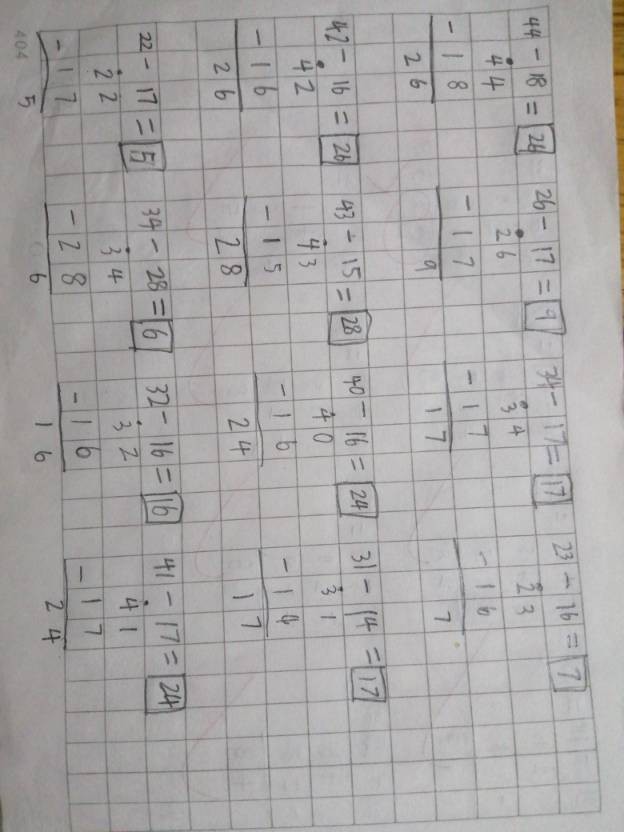 44 - 18 = 26 26 - 17 = 9 34 - 17 = 17 23 - 16 = 7
44 26 34 23
- 18 - 17 - 17 - 16
26 9 17 7
42 - 16 = 26 43 - 15 = 28 40 - 16 = 24 31 - 14 = 17
42 43 40 31
- 16 - 15 - 16 - 14
26 28 24 17
22 - 17 = 5 34 - 28 = 6 32 - 16 = 16 41 - 17 = 24
22 34 32 41
- 17 - 28 - 16 - 17
5 6 16 24
404